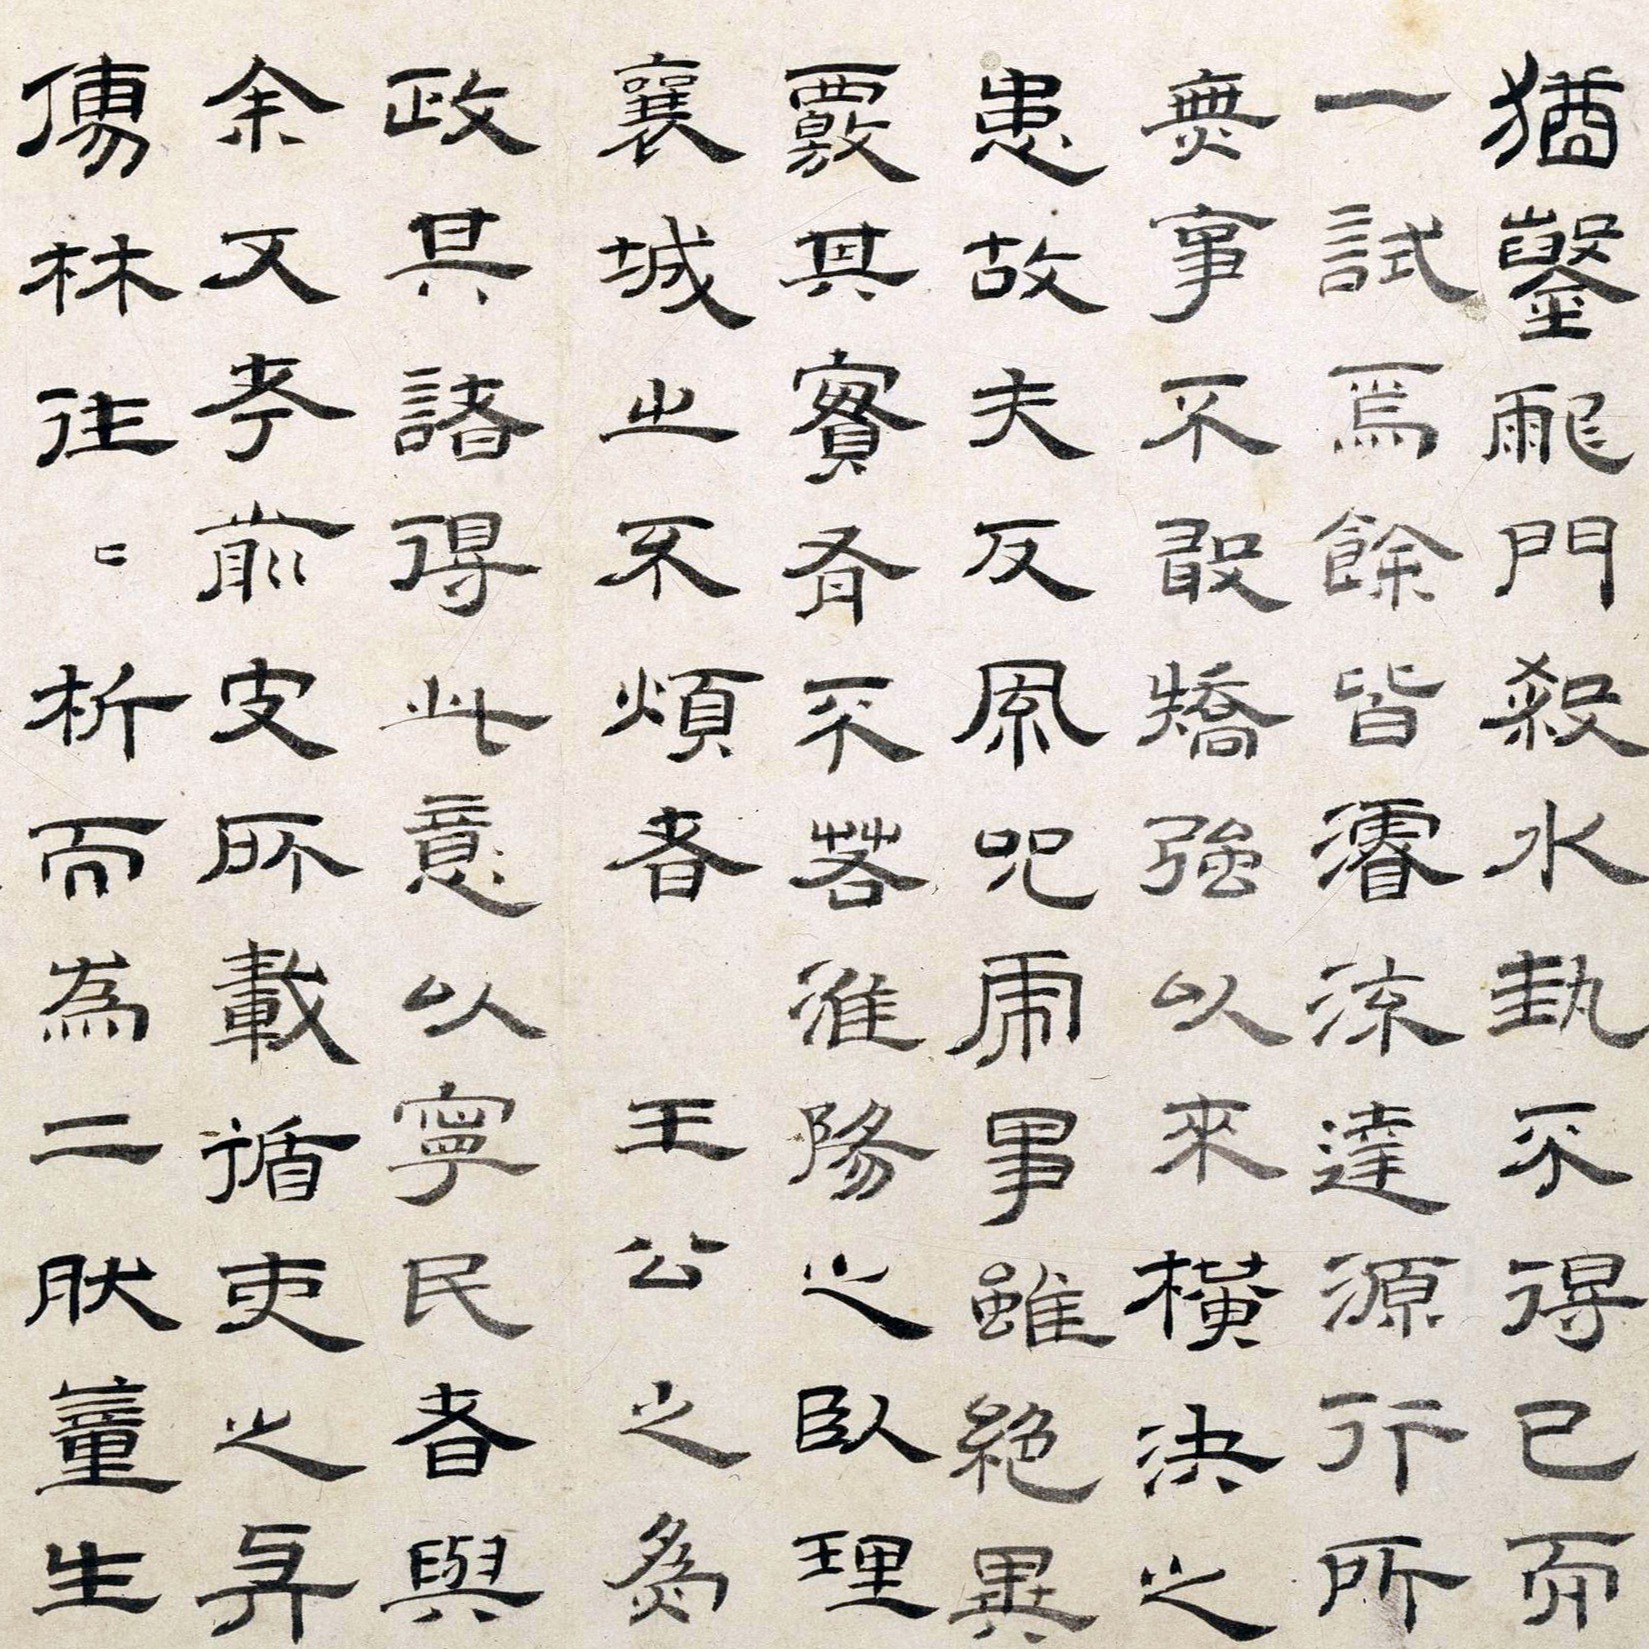 猶鑿龍門殺水埶不得已而
一試焉餘皆濬流達源行所
無事不敢矯強以來橫決之
患故夫反風咒虎事雖絕異
覈其實有不若淮陽之臥理
襄城之不煩者 王公之為
政其諸得此意以寧民者與
余又考前史所載循吏之與
儒林往〻析而為二狀董生